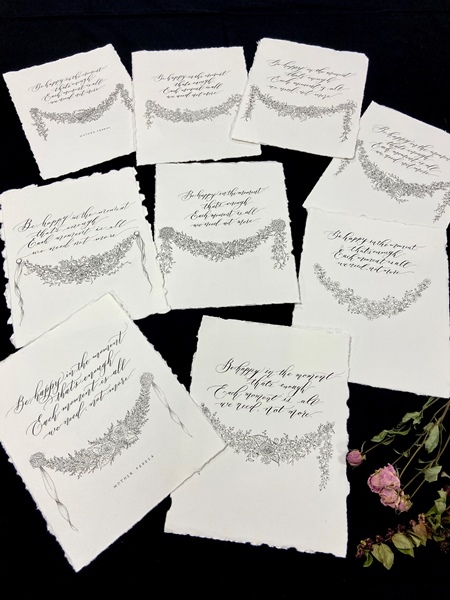 Be happy in the moment
that's enough
Each moment is all
we need not more
MOTHER TERESA
Be happy in the moment
that's enough
Each moment is all
we need not more
Be happy in the moment
that's enough
Each moment is all
we need not more
Be happy in the moment
that's enough
Each moment is all
we need not more
Be happy in the moment
that's enough
Each moment is all
we need not more
Be happy in the moment
that's enough
Each moment is all
we need not more
Be happy in the moment
that's enough
Each moment is all
we need not more
Be happy in the moment
that's enough
Each moment is all
we need not more
MOTHER TERESA
Be happy in the moment
that's enough
Each moment is all
we need not more